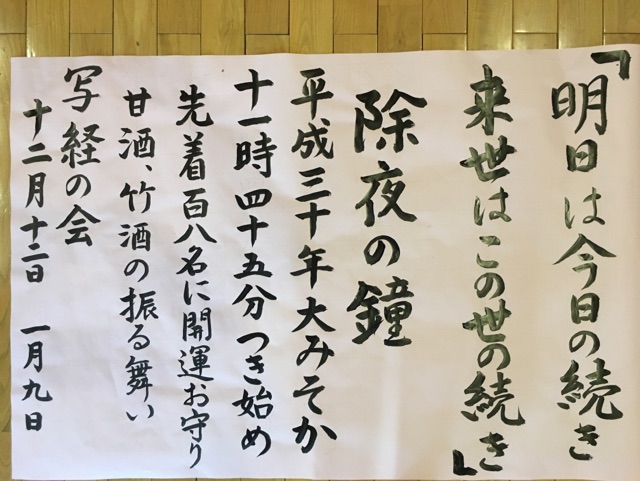 「明日は今日の続き
来世はこの世の続き」
除夜の鐘
平成三十年大みそか
十一時四十五分つき始め
先着百八名に開運お守り
甘酒、竹酒の振る舞い
写経の会
十二月十二日 一月九日